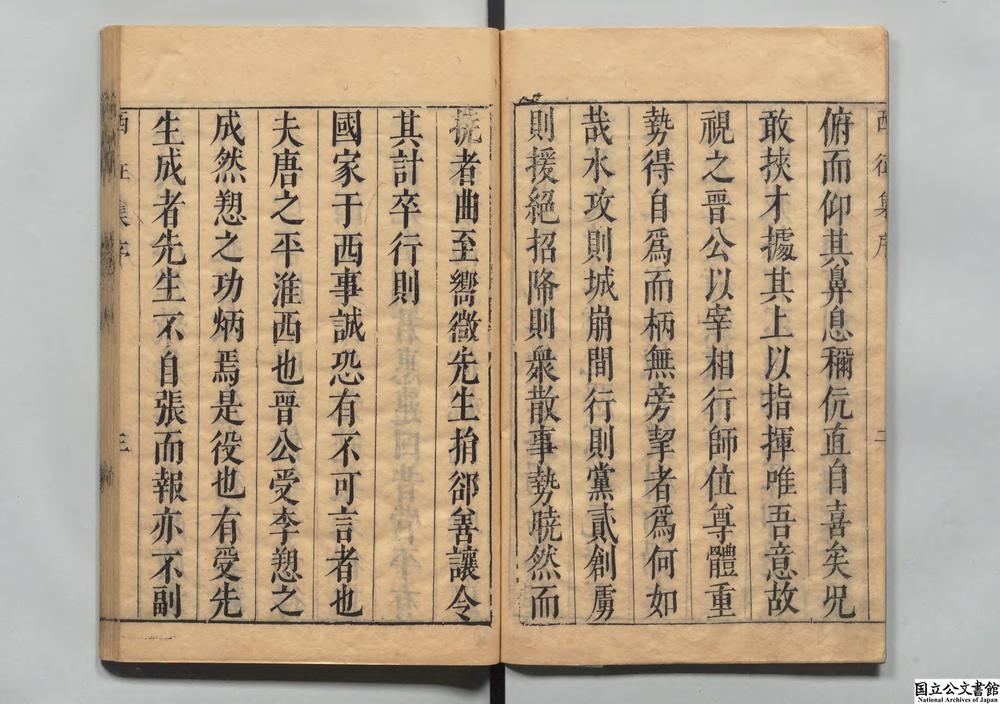 西征集序
二
俯而仰其鼻息稱伉直自喜矣況
敢挾才據其上以指揮唯吾意故
視之晉公以宰相行師位尊體重
勢得自為而柄無旁挈者為何如
哉水攻則城崩間行則黨貳創虜
則援絕招降則衆散事勢曉然而
撓者曲至嚮微先生捐郤善讓令
其計卒行則
國家于西事誠恐有不可言者也
夫唐之平淮西也晉公受李愬之
成然愬之功炳焉是役也有受先
生成者先生不自張而報亦不副
西征集序
三
国立公文書館
National Archives of Japan